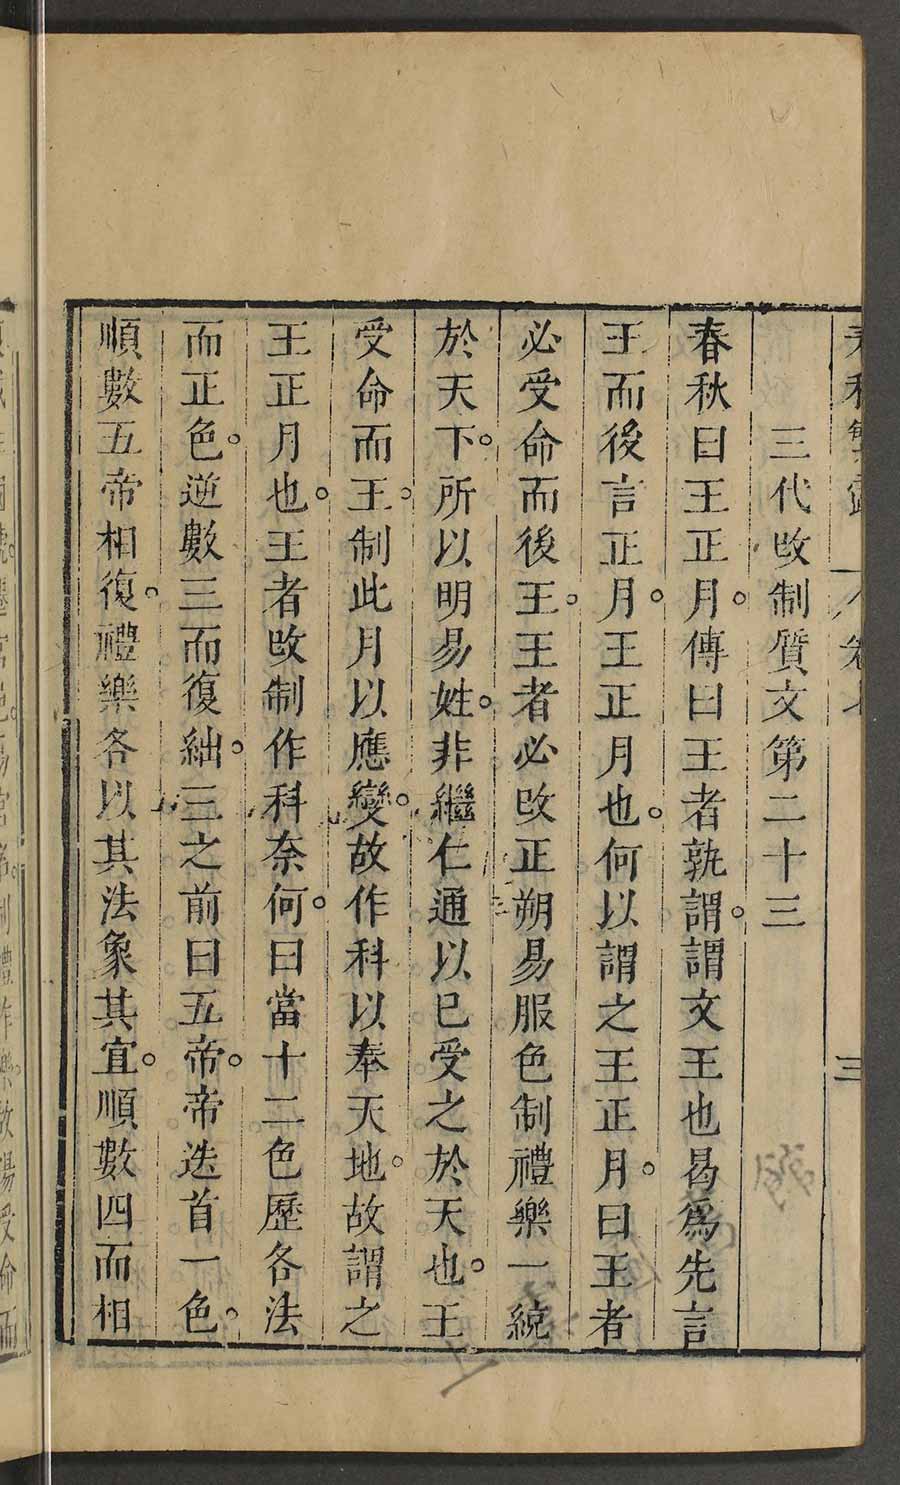 三代改制質文第二十三
春秋曰王正月。傳曰王者孰謂。謂文王也曷爲先言
王而後言正月。王正月也。何以謂之王正月。曰王者
必受命而後王。王者必改正朔易服色制禮樂一統
於天下。所以明易姓。非繼仁通以已受之於天也。王
受命而王。制此月以應變。故作科以奉天地。故謂之
王正月也。王者改制作科奈何。曰當十二色歷各法
而正色。逆數三而復絀。三之前曰五帝。帝迭首一色。
順數五帝相復。禮樂各以其法象其宜。順數四而相